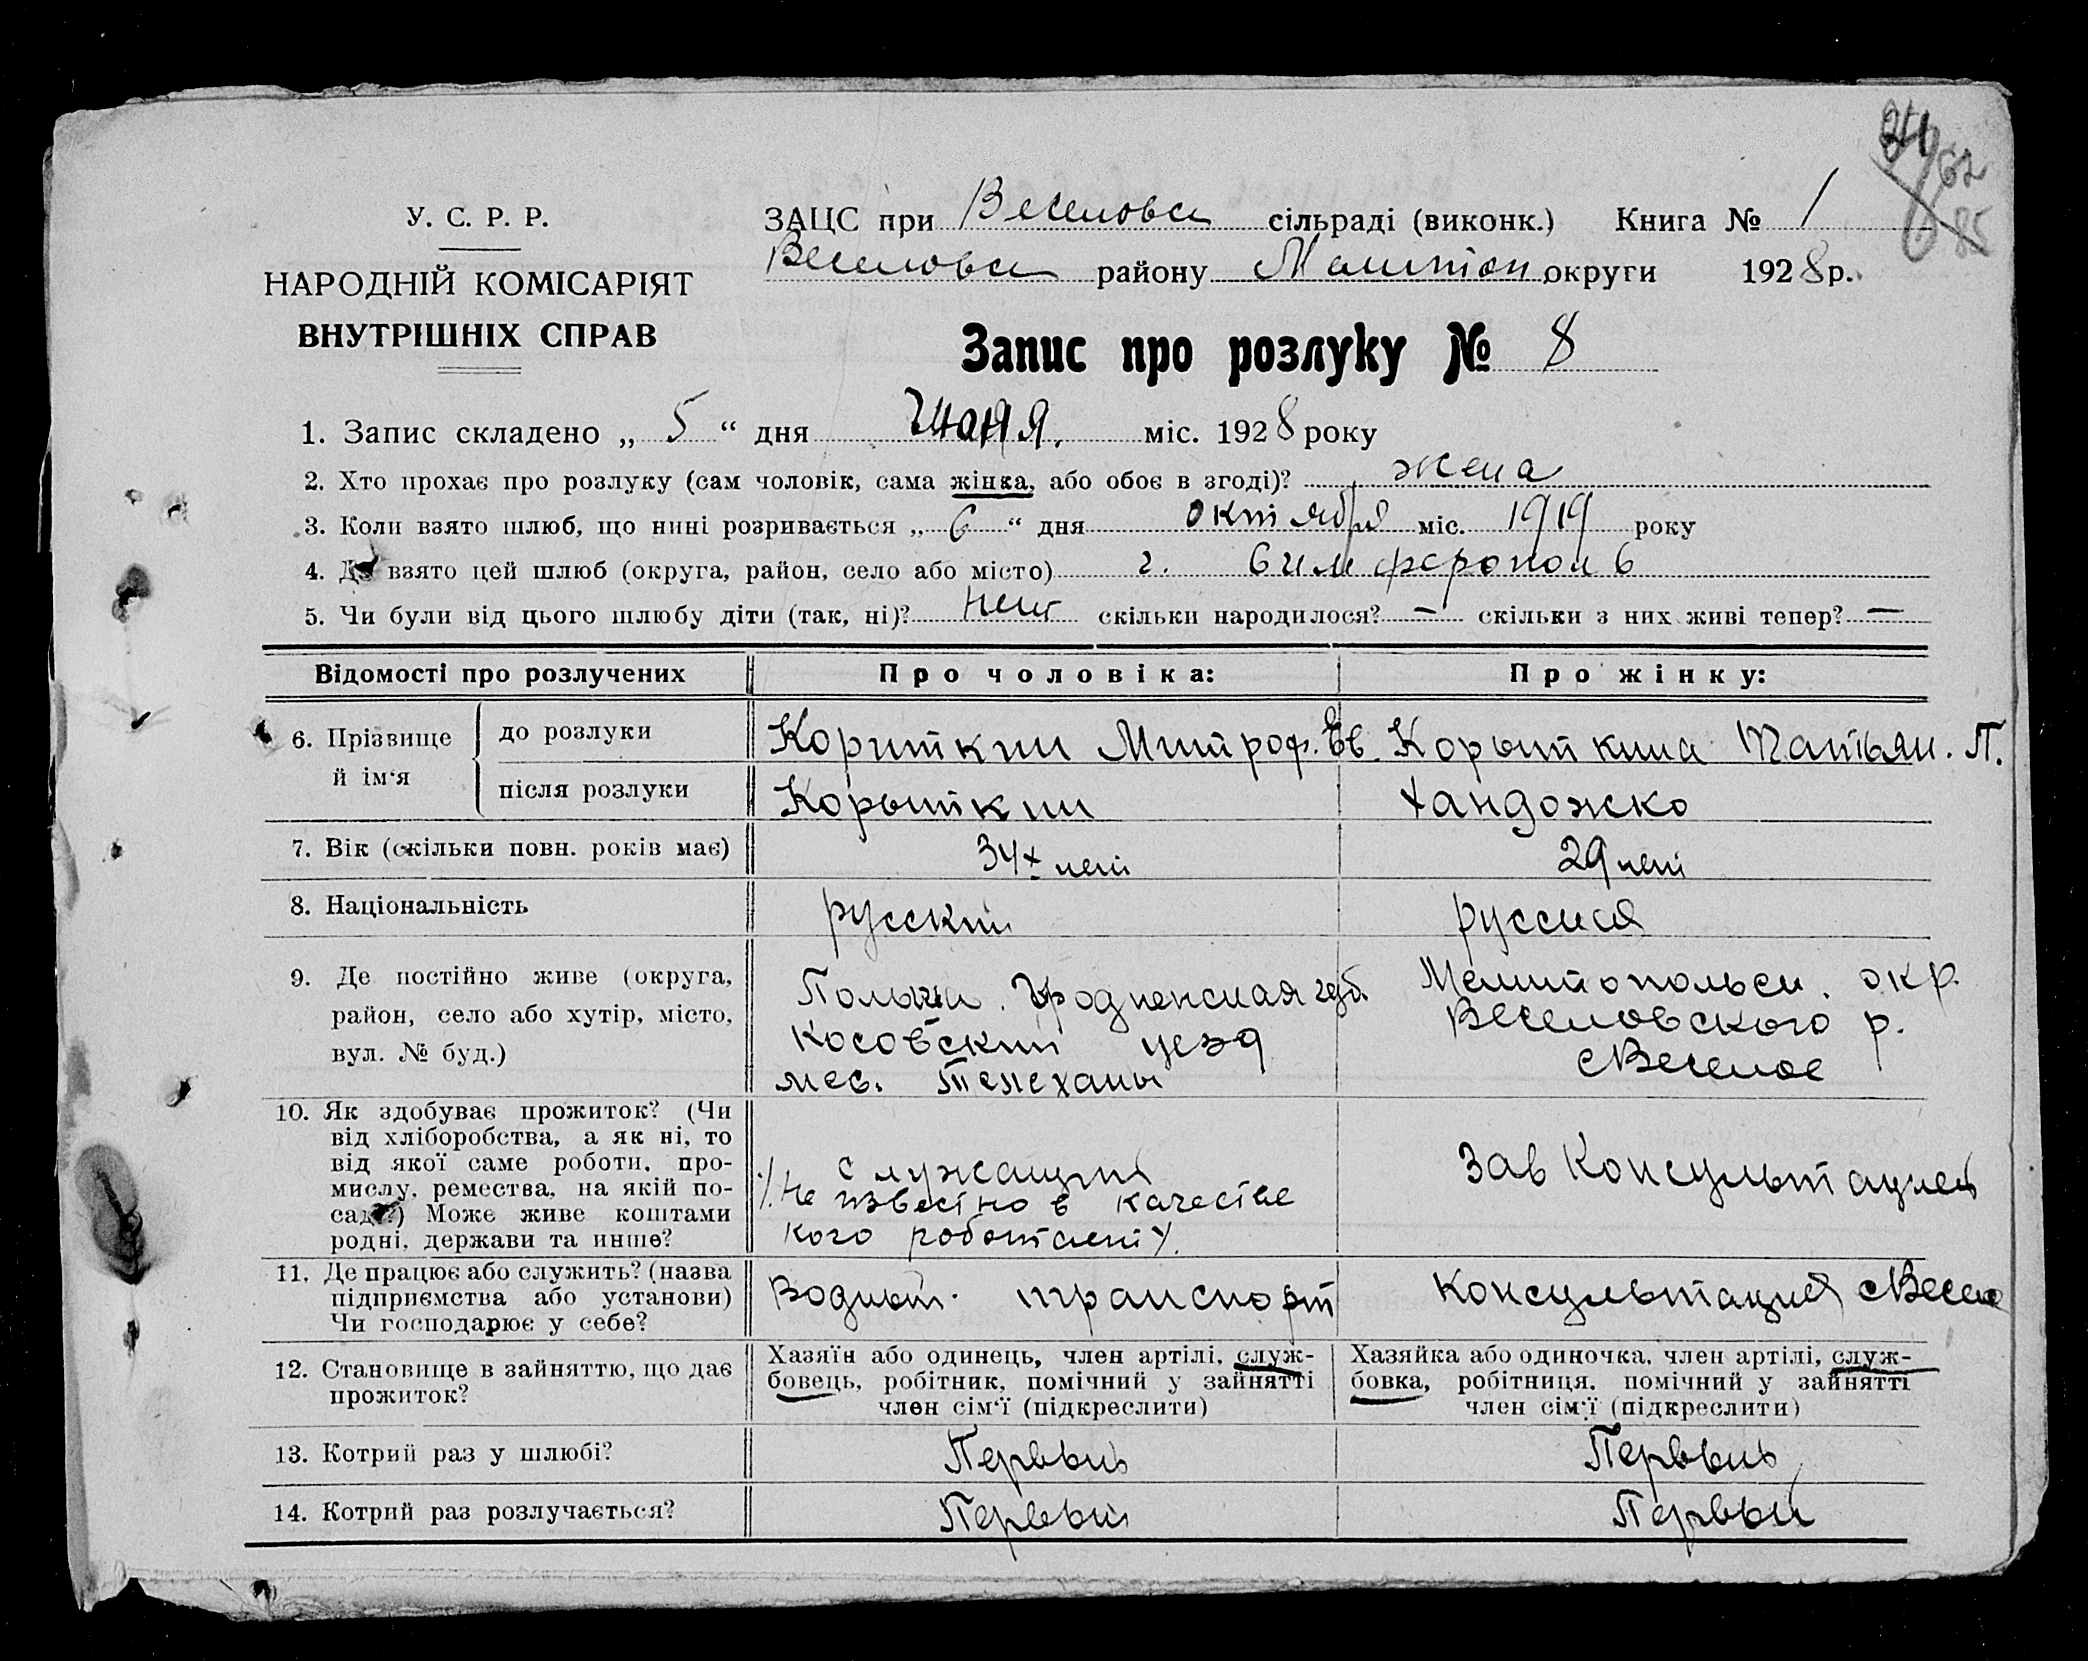 84
62
85
У. С. Р. Р.
НАРОДНІЙ КОМІСАРІЯТ
ВНУТРІШНІХ СПРАВ
ЗАЦС при Веселовск сільраді (виконк.) Книга № 1
Веселовск району Мелитоп округи 1928 р.
Запис про розлуку № 8
1. Запис складено „ 5 “ дня міс. 1928 року
2. Хто прохає про розлуку (сам чоловік, сама жінка, або обоє в згоді)? жена
3. Коли взято шлюб, що нині розривається „ 6 “ дня октября міс. 1919 року
4. Де взято цей шлюб (округа, район, село або місто) г. Симферополь
5. Чи були від цього шлюбу діти (так, ні)? нет скільки народилося? — скільки з них живі тепер? —
Відомості про розлучених Про чоловіка: Про жінку:
6. Прізвище й ім‘я
до розлуки Кориткин Митроф. Ев. Корыткина Татьян. П.
після розлуки Корыткин Хандожко
7. Вік (скільки повн. років має) 34х лет 29 лет
8. Національність русский русская
9. Де постійно живе (округа,
район, село або хутір, місто,
вул. № буд.)
Польша. Гродненская губ.
Косовский уезд
мес. Телеханы
Мелитопольск. окр.
Веселовского р.
с Веселое
10. Як здобуває прожиток? (Чи
від хліборобства, а як ні, то
від якої саме роботи, про-
мислу, ремества, на якій по-
саді?) Може живе коштами
родні, держави та инше?
служащий
/. Не известно в качестве
кого работает /.
Зав Консультацией
11. Де працює або служить? (назва
підприємства або установи)
Чи господарює у себе?
Водный транспорт
Консультация с Весело
12. Становище в зайняттю, що дає
прожиток?
Хазяїн або одинець, член артілі, служ-
бовець, робітник, помічний у зайнятті
член сім‘ї (підкреслити)
Хазяйка або одиночка, член артілі, служ-
бовка, робітниця, помічний у зайнятті
член сім‘ї (підкреслити)
13. Котрий раз у шлюбі? Первый Первый
14. Котрий раз розлучається? Первый Первый